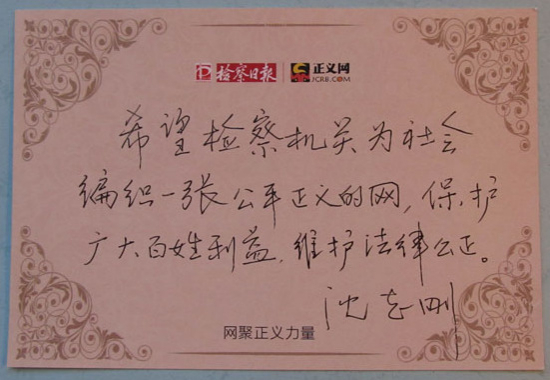 检察日报 正义网
JCRB.COM
希望检察机关为社会
编织一张公平正义的网,保护
广大百姓利益,维护法律公正。
沈志刚
网聚正义力量